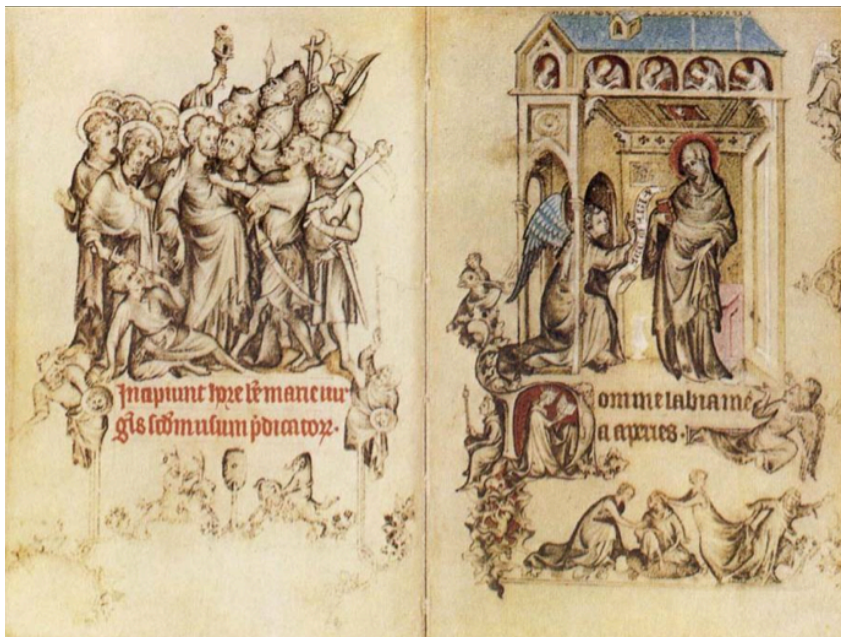 Incipiunt hore bẽ marie uir
gis scd̃m usum p̃dicatoꝝ.
Domine labia me
a aperies.